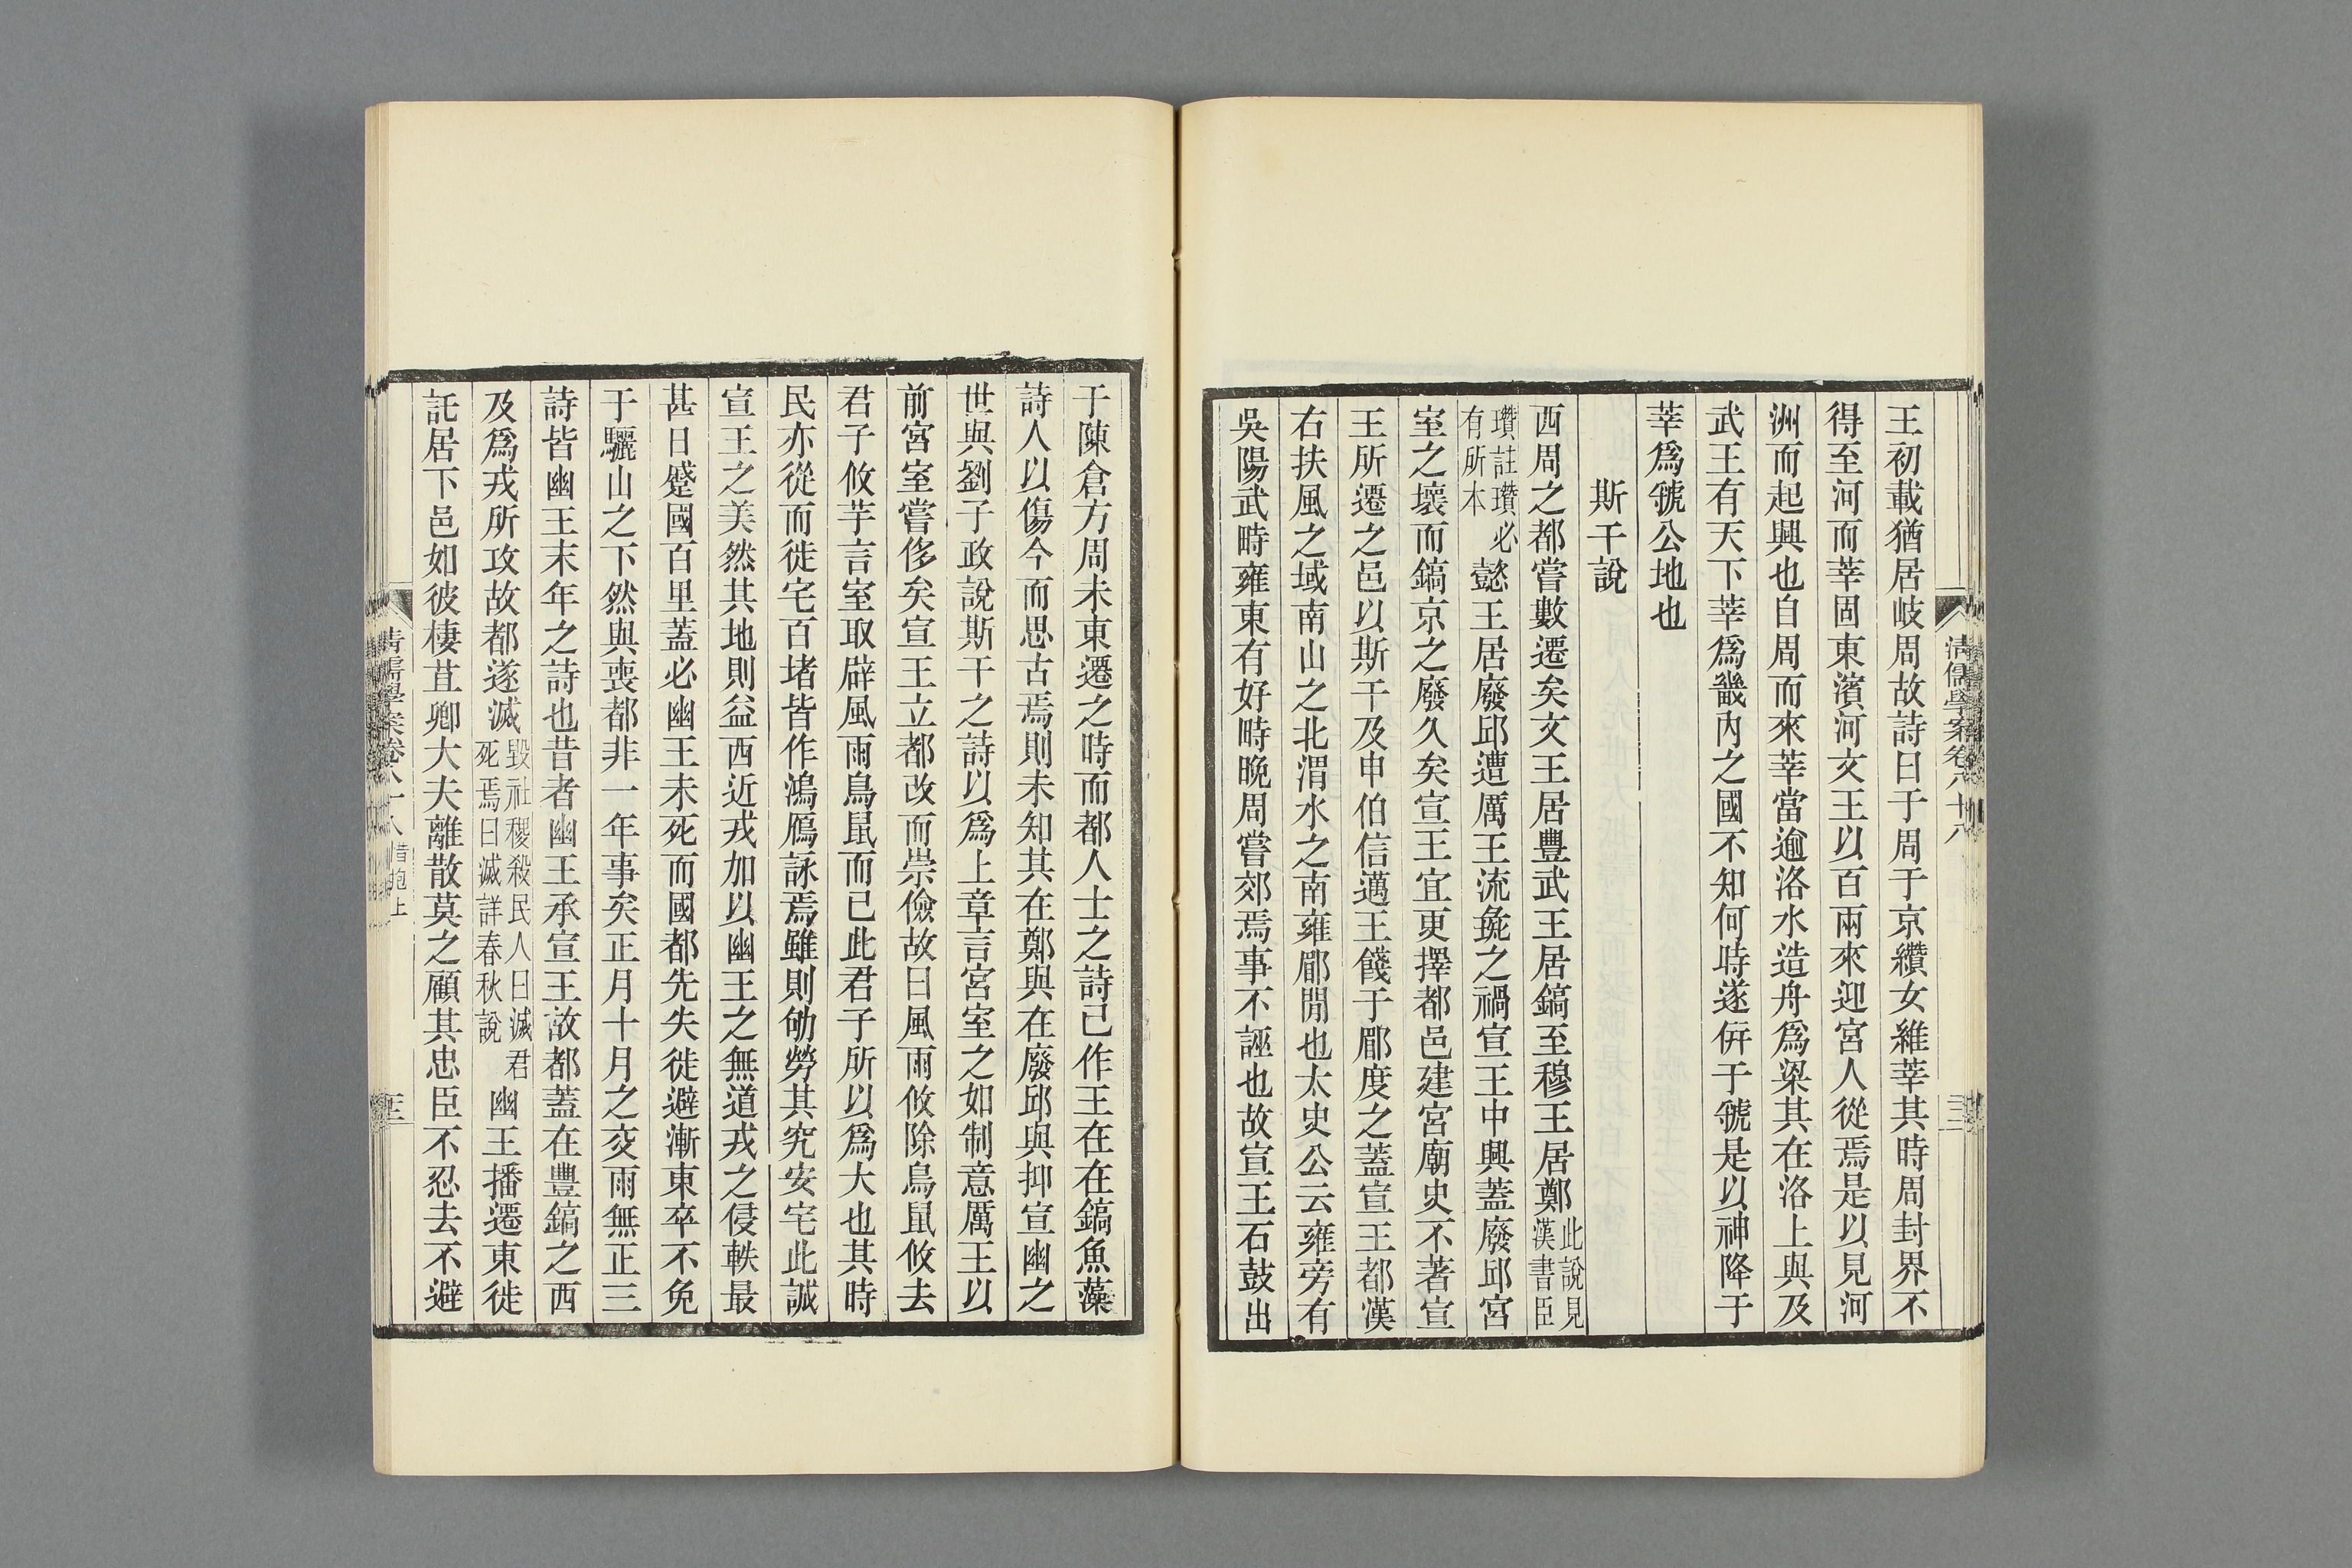 王初載猶居岐周故詩曰于周于京纘女維莘其時周封界不
得至河而莘固東濱河文王以百兩來迎宮人從焉是以見河
洲而起興也自周而來莘當逾洛水造舟爲梁其在洛上與及
武王有天下莘爲畿內之國不知何時遂併于虢是以神降于
莘爲虢公地也
斯干說
西周之都嘗數遷矣文王居豐武王居鎬至穆王居鄭此說見漢書臣
瓚註瓚必有所本懿王居廢邱遭厲王流彘之禍宣王中興蓋廢邱宮
室之壞而鎬京之廢久矣宣王宜更擇都邑建宮廟史不著宣
王所遷之邑以斯干及申伯信邁王餞于郿度之蓋宣王都漢
右扶風之域南山之北渭水之南雍郿閒也太史公云雍旁有
吳陽武畤雍東有好畤晚周嘗郊焉事不誣也故宣王石鼓出
清儒學案卷八十八
于陳倉方周未東遷之時而都人士之詩已作王在在鎬魚藻
詩人以傷今而思古焉則未知其在鄭與在廢邱與抑宣幽之
世與劉子政說斯干之詩以爲上章言宮室之如制意厲王以
前宮室嘗侈矣宣王立都改而崇儉故曰風雨攸除鳥鼠攸去
君子攸芋言室取辟風雨鳥鼠而已此君子所以爲大也其時
民亦從而徙宅百堵皆作鴻鴈詠焉雖則劬勞其究安宅此誠
宣王之美然其地則益西近戎加以幽王之無道戎之侵軼最
甚日蹙國百里蓋必幽王未死而國都先失徙避漸東卒不免
于驪山之下然與喪都非一年事矣正月十月之交雨無正三
詩皆幽王末年之詩也昔者幽王承宣王故都蓋在豐鎬之西
及爲戎所攻故都遂滅毀社稷殺民人曰滅君死焉曰滅詳春秋說幽王播遷東徙
託居下邑如彼棲苴卿大夫離散莫之顧其忠臣不忍去不避
清儒學案卷八十八 惜抱上